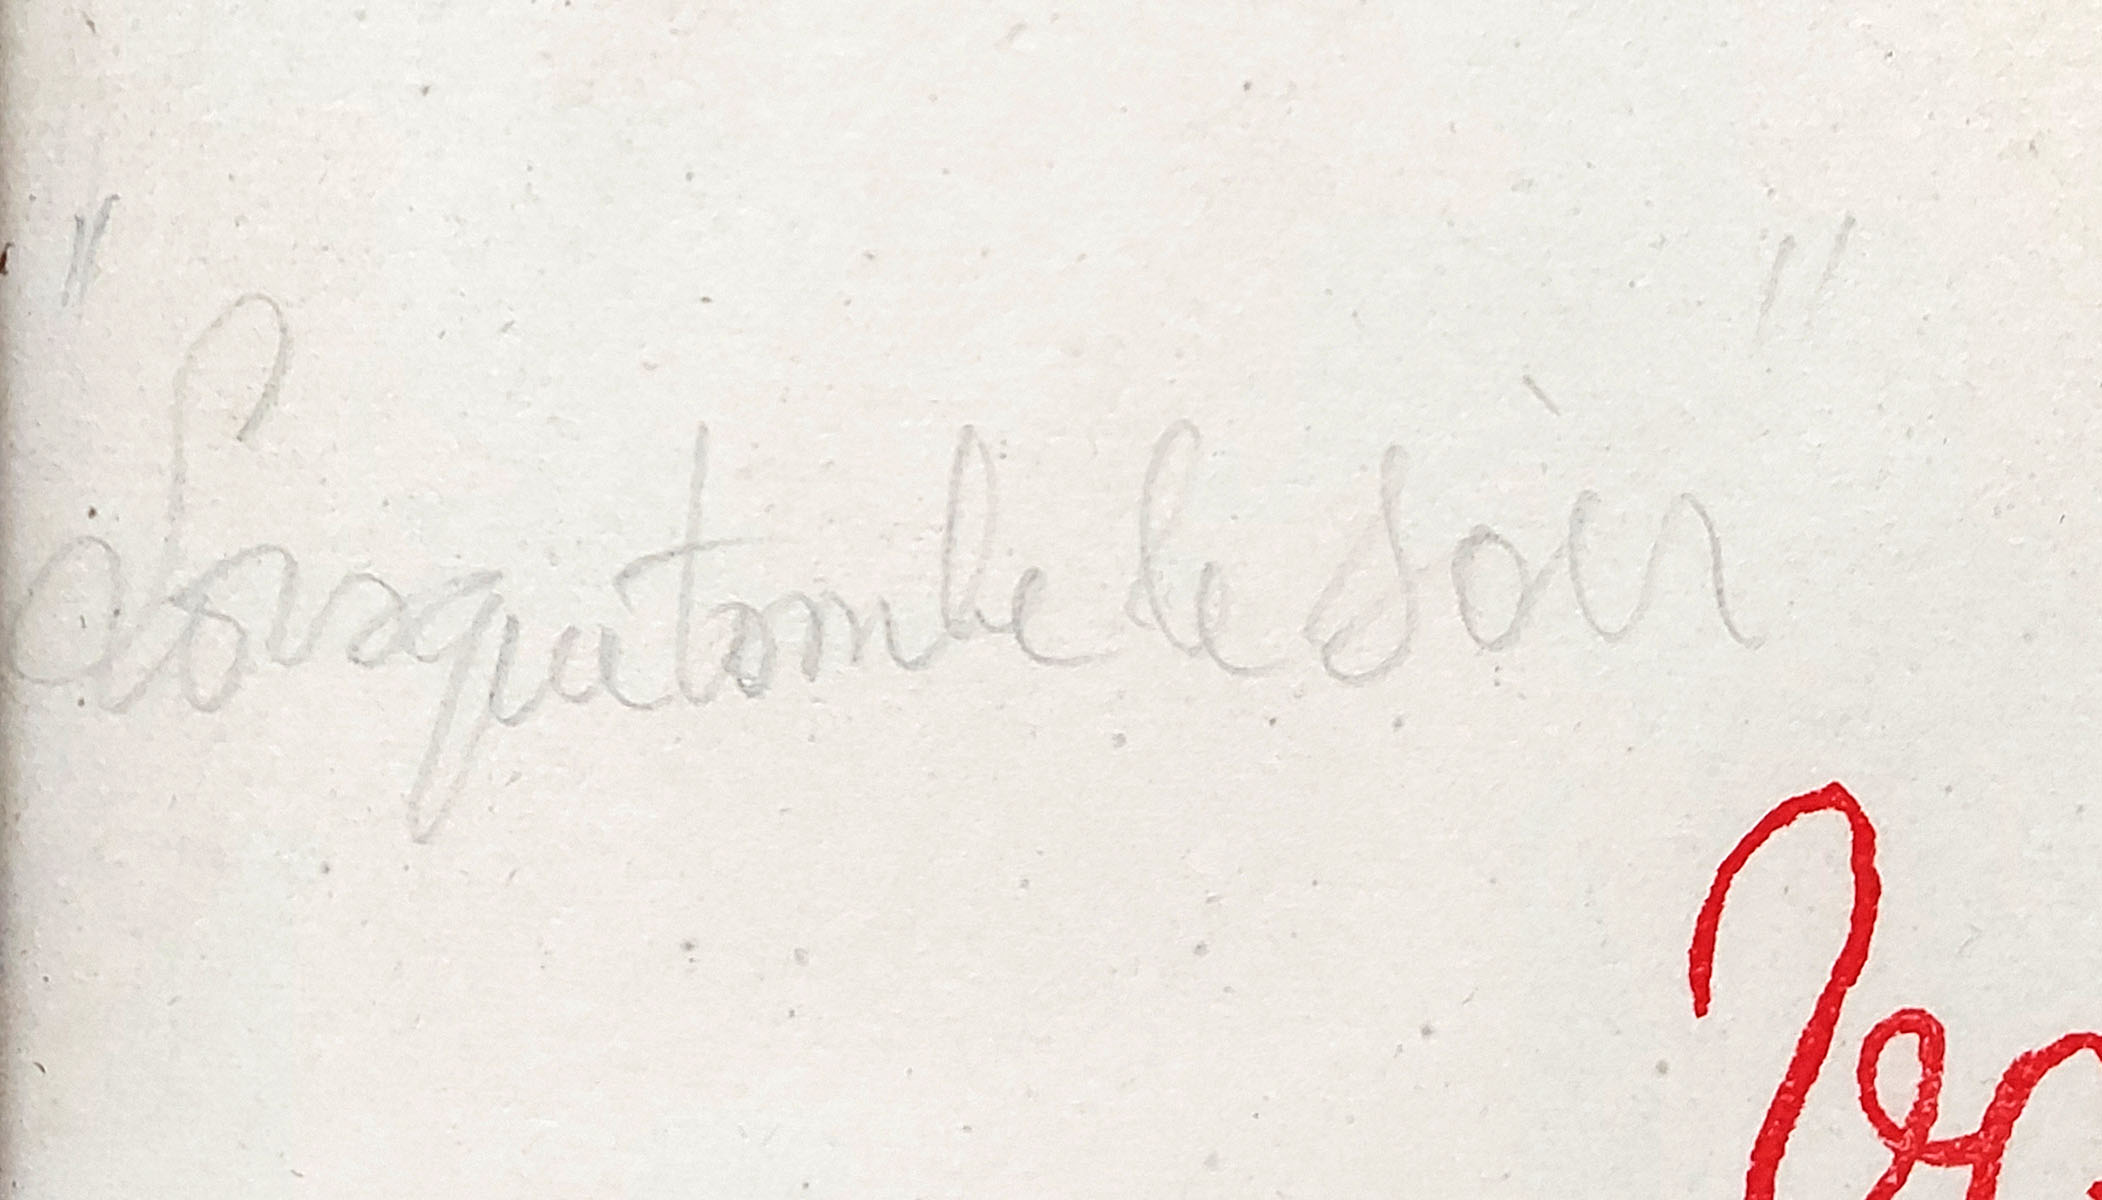 "Lorsque tombe le soir"